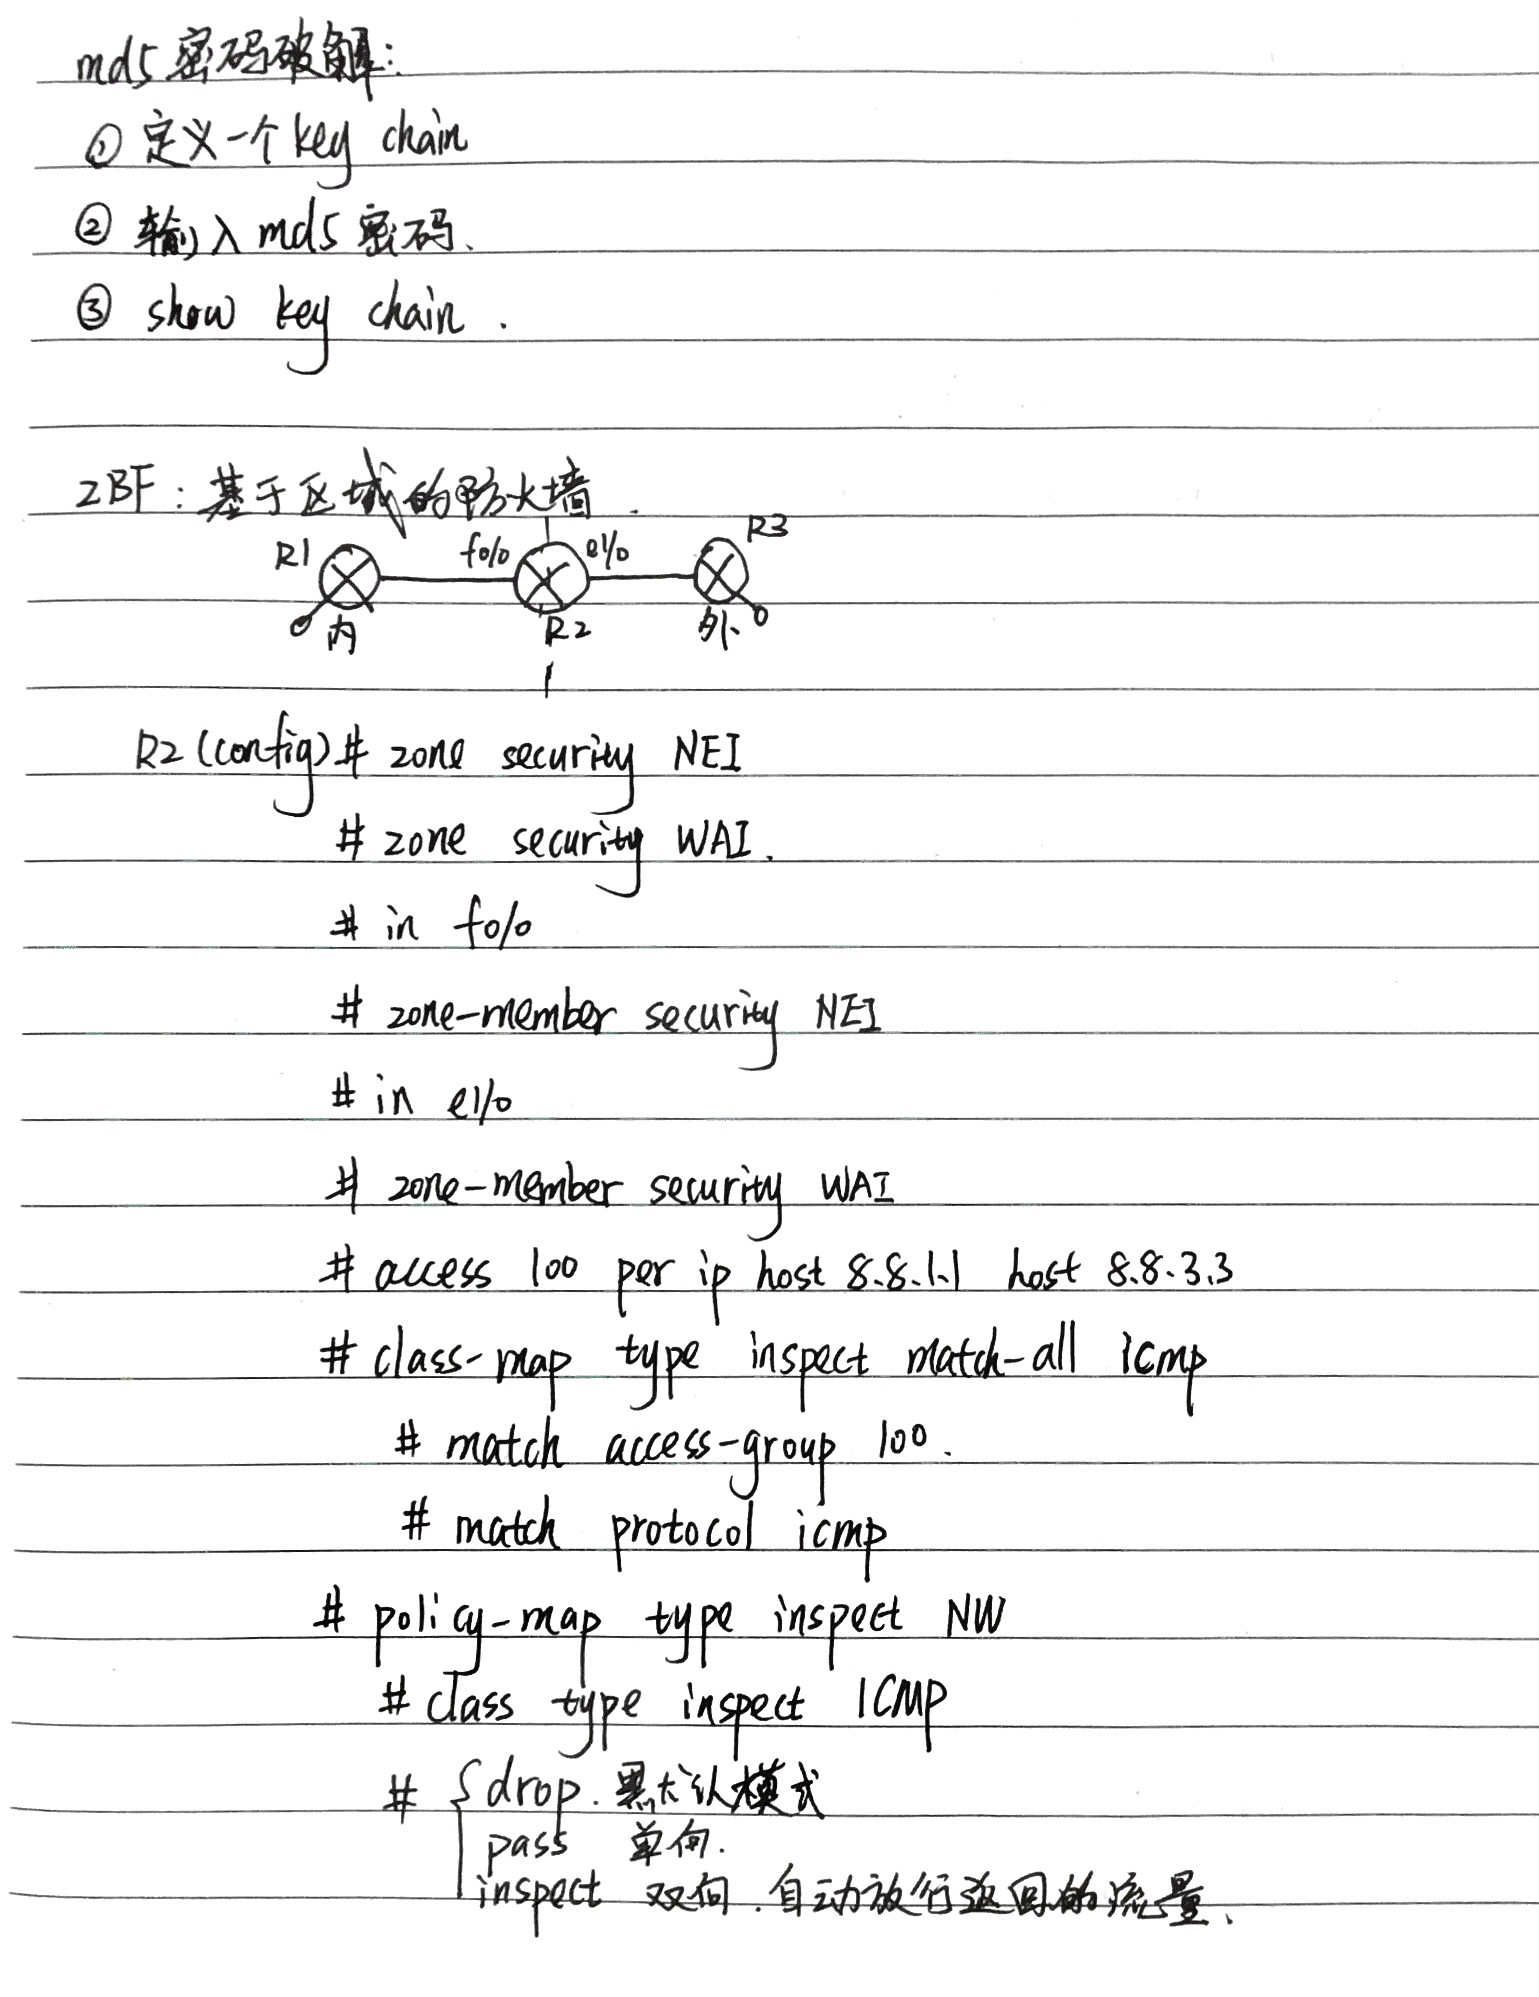 md5密码破解:
① 定义一个 key chain
② 输入 md5 密码.
③ show key chain .
ZBF : 基于区域的防火墙 .
R1 f0/0 e1/0 R3
内 R2 外
R2 (config)# zone security NEI
# zone security WAI.
# in f0/0
# zone-member security NEI
# in e1/0
# zone-member security WAI
# access 100 per ip host 8.8.1.1 host 8.8.3.3
# class-map type inspect match-all icmp
# match access-group 100.
# match protocol icmp
# policy-map type inspect NW
# class type inspect ICMP
# { drop. 默认模式
pass 单向.
inspect 双向.自动放行返回的流量.